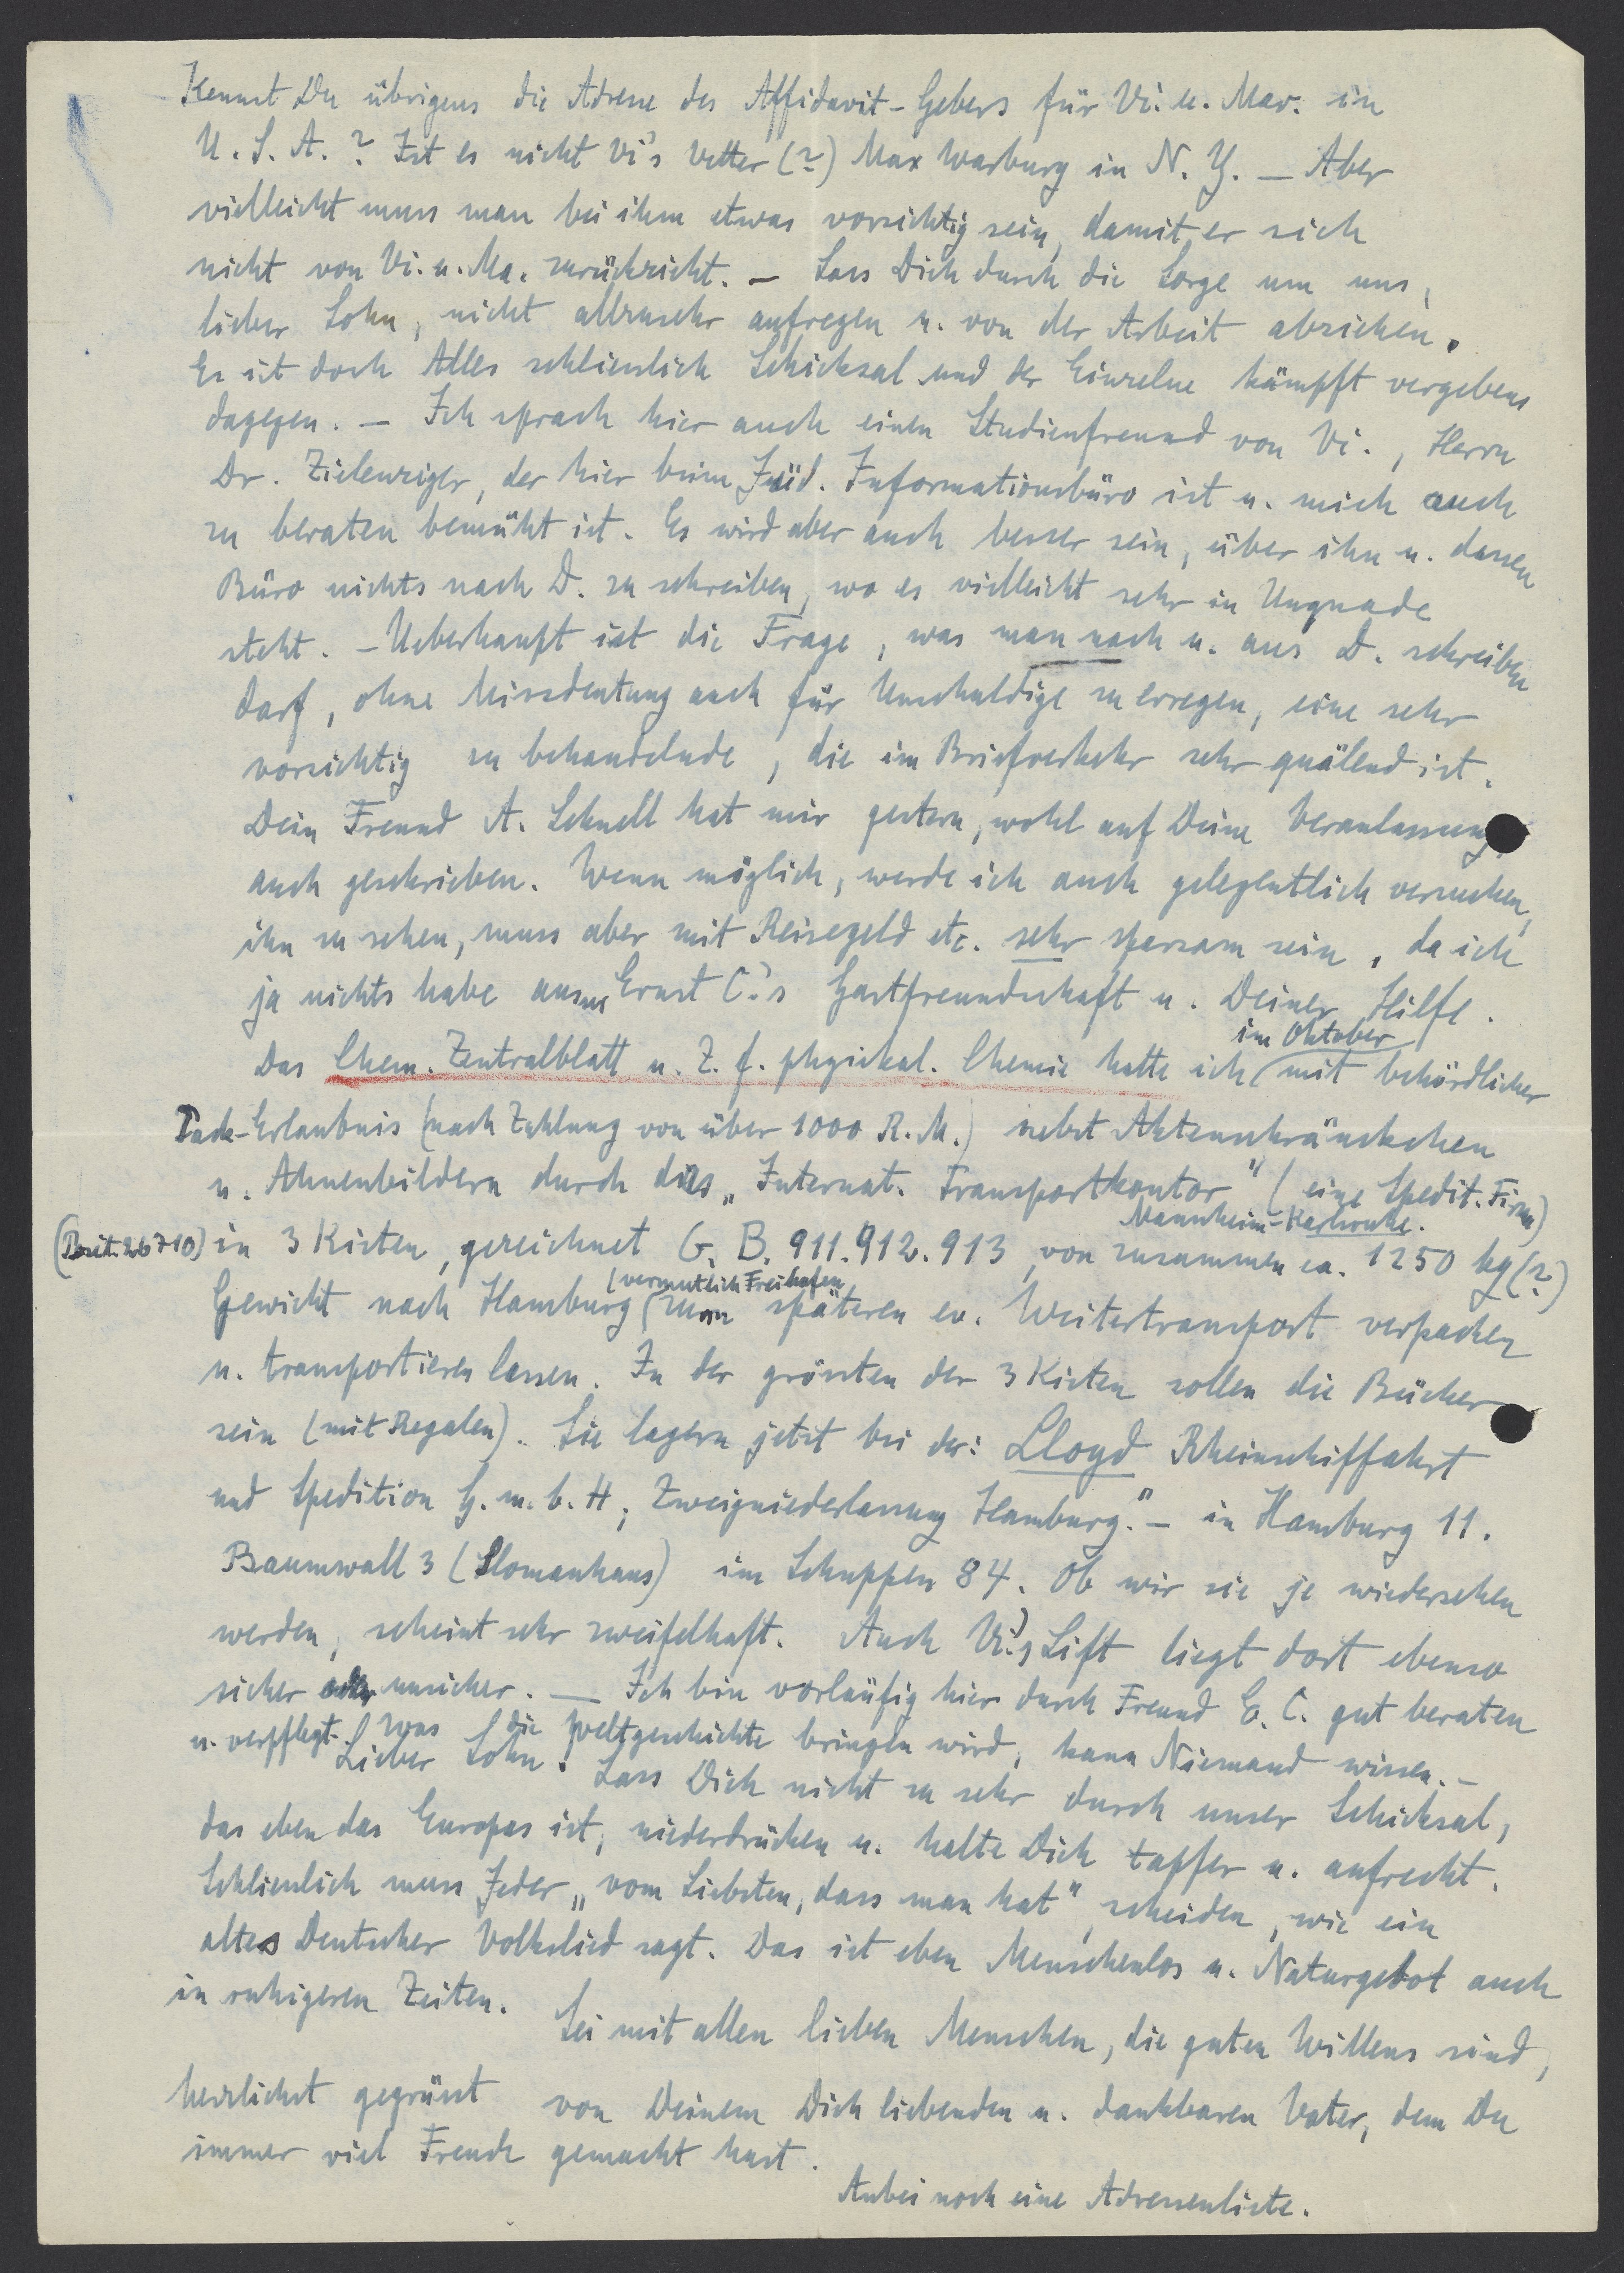 Kennst Du übrigens die Adresse des Affidavit-Gebers für Vi. u. Mar. in
U. S. A. ? Ist es nicht Vi's Vetter (?) Max Warburg in N. Y. — Aber
vielleicht muss man bei ihm etwas vorsichtig sein, damit er sich
nicht von Vi. u. Ma. zurückzieht. — Lass Dich durch die Sorge um uns,
lieber Sohn, nicht allzusehr aufregen u. von der Arbeit abziehen.
Es ist doch Alles schliesslich Schicksal und der Einzelne kämpft vergebens
dagegen. — Ich sprach hier auch einen Studienfreund von Vi., Herrn
Dr. Zielenziger, der hier beim Jüd. Informationsbüro ist u. mich auch
zu beraten bemüht ist. Es wird aber auch besser sein, über ihn u. dessen
Büro nichts nach D. zu schreiben, wo es vielleicht sehr in Ungnade
steht. – Ueberhaupt ist die Frage, was man nach u. aus D. schreiben
darf, ohne Missdeutung auch für Unschuldige zu erregen, eine sehr
vorsichtig zu behandelnde, die im Briefverkehr sehr quälend ist.
Dein Freund A. Schnell hat mir gestern, wohl auf Deine Veranlassung,
auch geschrieben. Wenn möglich, werde ich auch gelegentlich versuchen,
ihn zu sehen, muss aber mit Reisegeld etc. sehr sparsam sein, da ich
ja nichts habe ausser Ernst C.'s Gastfreundschaft u. Deiner Hilfe.
im Oktober
Das Chem. Zentralblatt u. Z. f. physikal. Chemie hatte ich mit behördlicher
Pack-Erlaubnis (nach Zahlung von über 1000 R. M.) nebst Aktenschränkchen
u. Ahnenbildern durch das „Internat. Transportkontor" (eine Spedit. Firma)
Mannheim-Karlsruhe.
(Posit. 26710) in 3 Kisten, gezeichnet G. B. 911. 912. 913, von zusammen ca. 1250 kg (?)
(vermutlich Freihafen
Gewicht nach Hamburg zum späteren ev. Weitertransport verpacken
u. transportieren lassen. In der grössten der 3 Kisten sollen die Bücher
sein (mit Regalen). Sie lagern jetzt bei der: Lloyd Rheinschiffahrt
und Spedition G. m. b. H., Zweigniederlassung Hamburg." – in Hamburg 11.
Baumwall 3 (Slomanhaus) im Schuppen 84. Ob wir sie je wiedersehen
werden, scheint sehr zweifelhaft. Auch Vi.'s Lift liegt dort ebenso
sicher oder unsicher. — Ich bin vorläufig hier durch Freund E. C. gut beraten
u. verpflegt. Was die Weltgeschichte bringen wird, kann Niemand wissen. –
Lieber Sohn! Lass Dich nicht zu sehr durch unser Schicksal,
das eben das Europas ist, niederdrücken u. halte Dich tapfer u. aufrecht.
Schliesslich muss Jeder „vom Liebsten, dass man hat", scheiden, wie ein
altes Deutscher Volkslied sagt. Das ist eben Menschenlos u. Naturgebot auch
in ruhigeren Zeiten.
Sei mit allen lieben Menschen, die guten Willens sind,
herzlichst gegrüsst von Deinem Dich liebenden u. dankbaren Vater, dem Du
immer viel Freude gemacht hast.
Anbei noch eine Adressenliste.